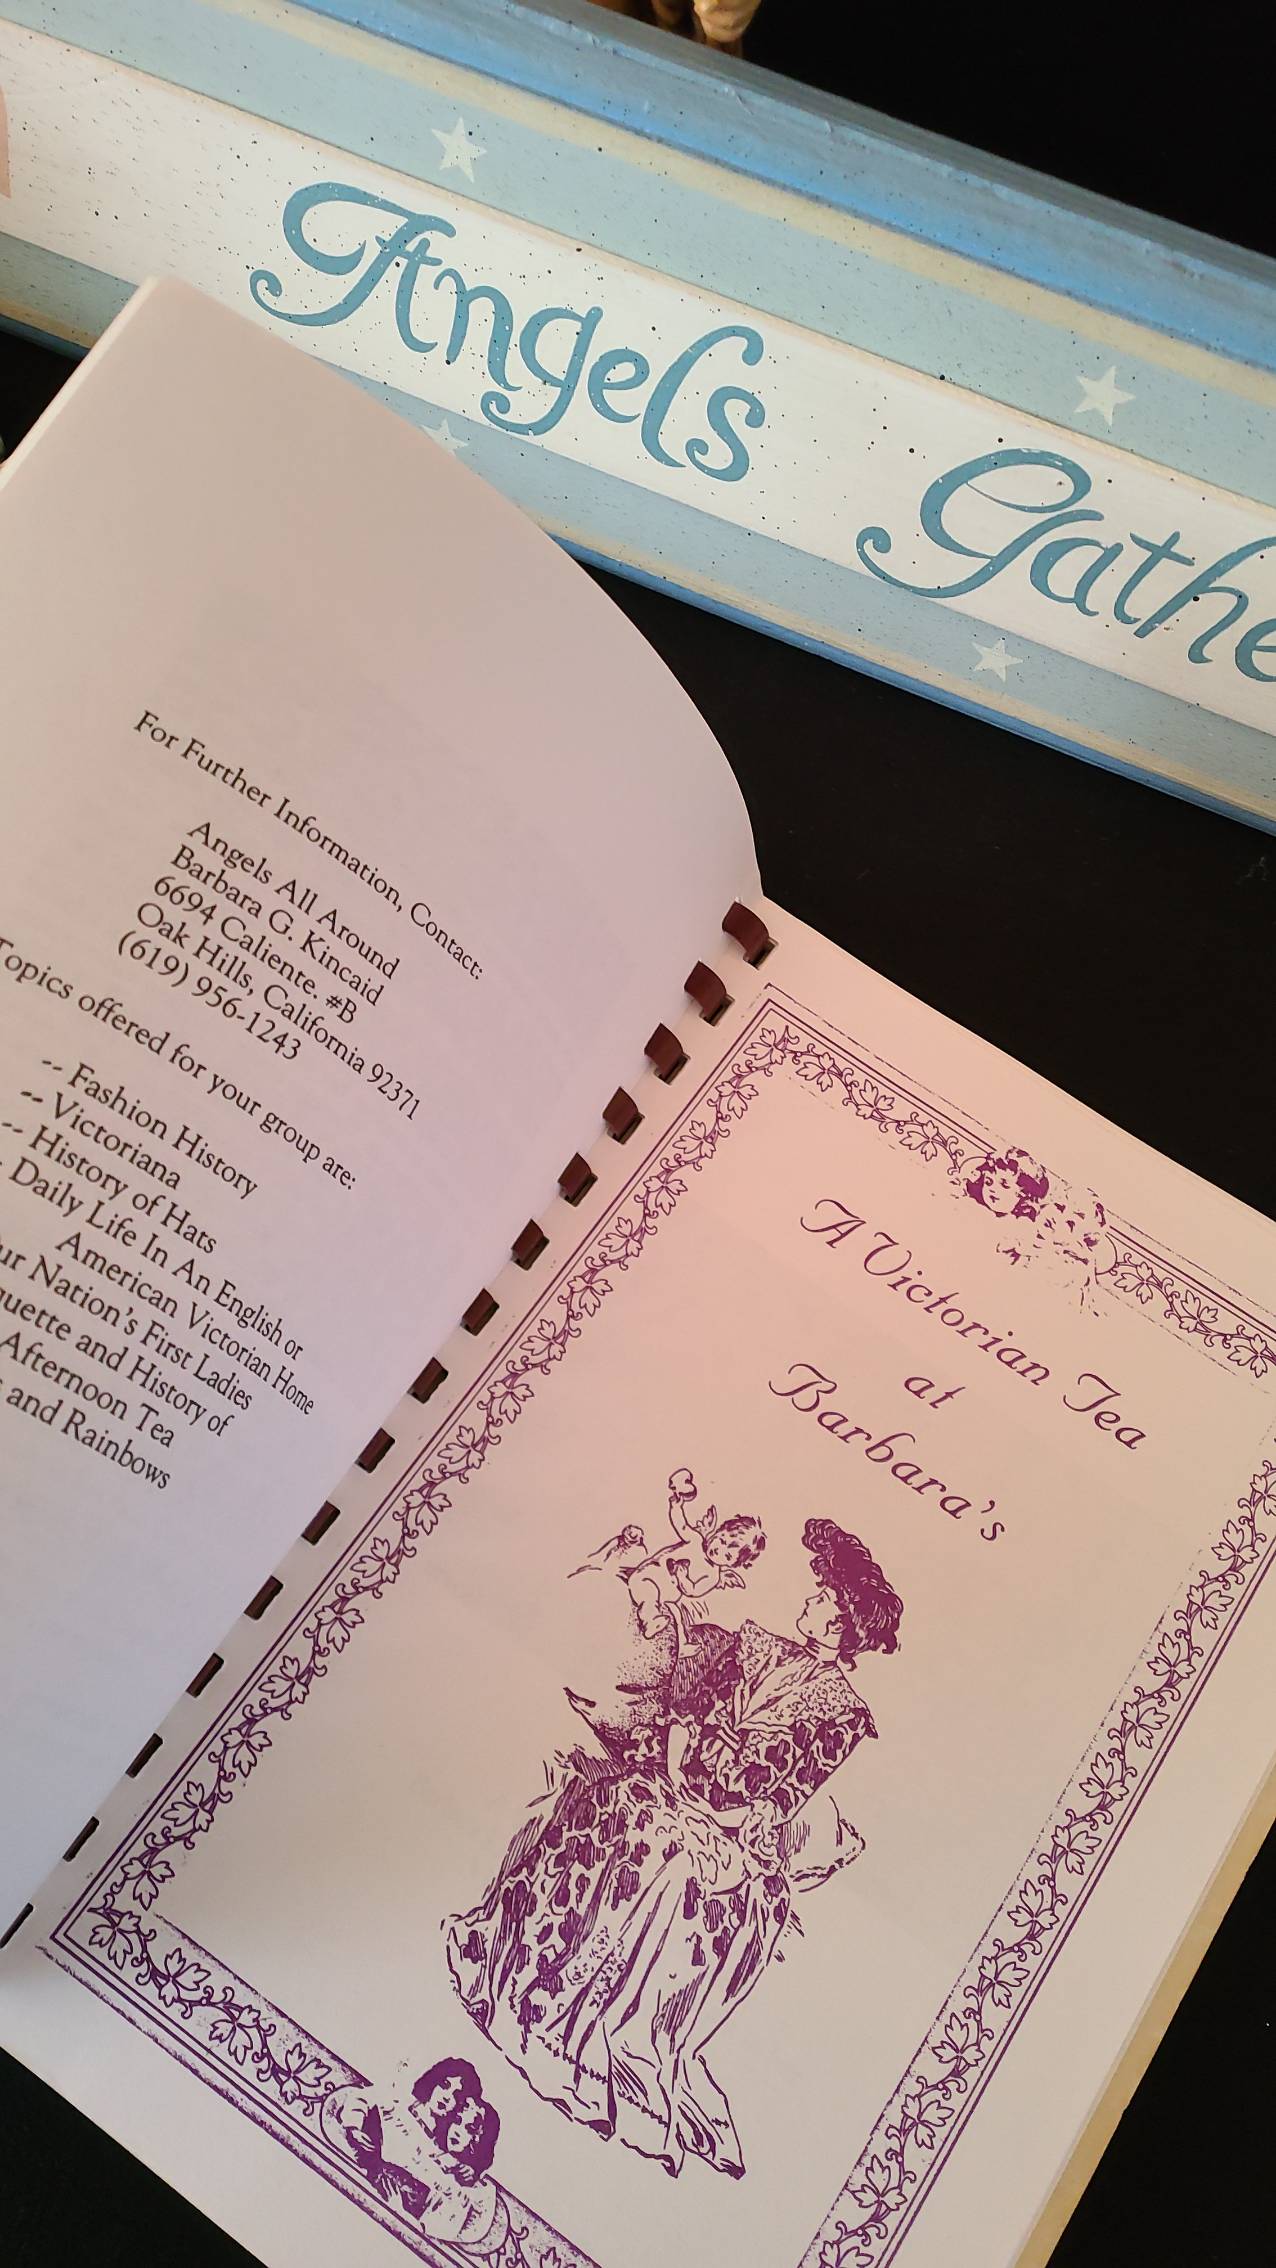 Angels Gathe
For Further Information, Contact:
Angels All Around
Barbara G. Kincaid
6694 Caliente. #B
Oak Hills, California 92371
(619) 956-1243
Topics offered for your group are:
-- Fashion History
-- Victoriana
-- History of Hats
- Daily Life In An English or
American Victorian Home
ur Nation's First Ladies
quette and History of
Afternoon Tea
s and Rainbows
A Victorian Tea
at
Barbara's